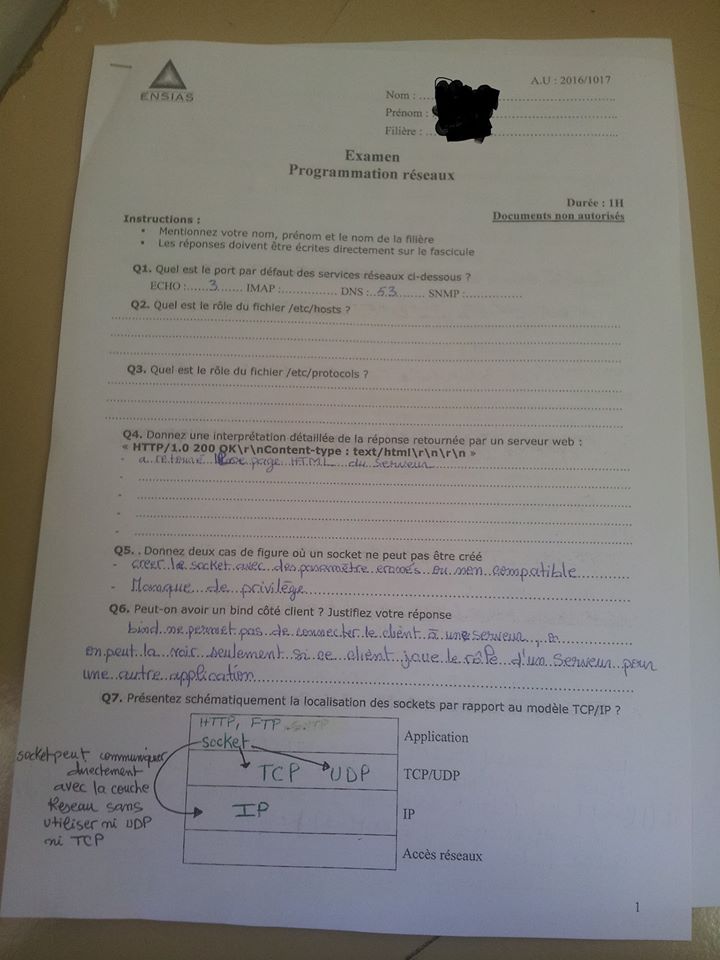 ENSIAS
A.U : 2016/1017
Nom :
Prénom :
Filière :
Examen
Programmation réseaux
Durée : 1H
Documents non autorisés
Instructions :
• Mentionnez votre nom, prénom et le nom de la filière
• Les réponses doivent être écrites directement sur le fascicule
Q1. Quel est le port par défaut des services réseaux ci-dessous ?
ECHO :......3...... IMAP :.............. DNS :..53........ SNMP :...............
Q2. Quel est le rôle du fichier /etc/hosts ?
Q3. Quel est le rôle du fichier /etc/protocols ?
Q4. Donnez une interprétation détaillée de la réponse retournée par un serveur web :
« HTTP/1.0 200 OK\r\nContent-type : text/html\r\n\r\n »
- a retourné page HTML du serveur
-
-
-
Q5. . Donnez deux cas de figure où un socket ne peut pas être créé
- créer le socket avec des paramètre erronés ou non compatible
- Manque de privilège
Q6. Peut-on avoir un bind côté client ? Justifiez votre réponse
bind ne permet pas de connecter le client à une serveur, ..
on peut la voir seulement si ce client joue le rôle d'un serveur pour
une autre application
Q7. Présentez schématiquement la localisation des sockets par rapport au modèle TCP/IP ?
HTTP, FTP
socket
Application
TCP UDP
TCP/UDP
IP
IP
Accès réseaux
socket peut communiquer
directement
avec la couche
Reseau sans
utiliser ni UDP
ni TCP
1